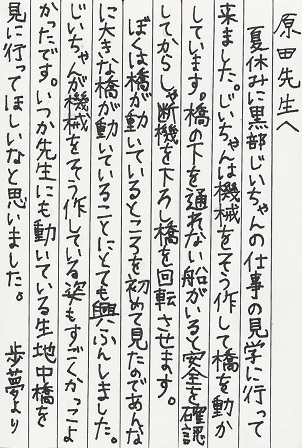 原田先生へ
夏休みに黒部じいちゃんの仕事の見学に行って
来ました。じいちゃんは機械をそう作して橋を動か
しています。橋の下を通れない船がいると安全を確認
してからしゃ断機を下ろし橋を回転させます。
ぼくは橋が動いているところを初めて見たのであんな
に大きな橋が動いていることにとても興ふんしました。
じいちゃんが機械をそう作している姿もすごくかっこよ
かったです。いつか先生にも動いている生地中橋を
見に行ってほしいなと思いました。
歩夢より